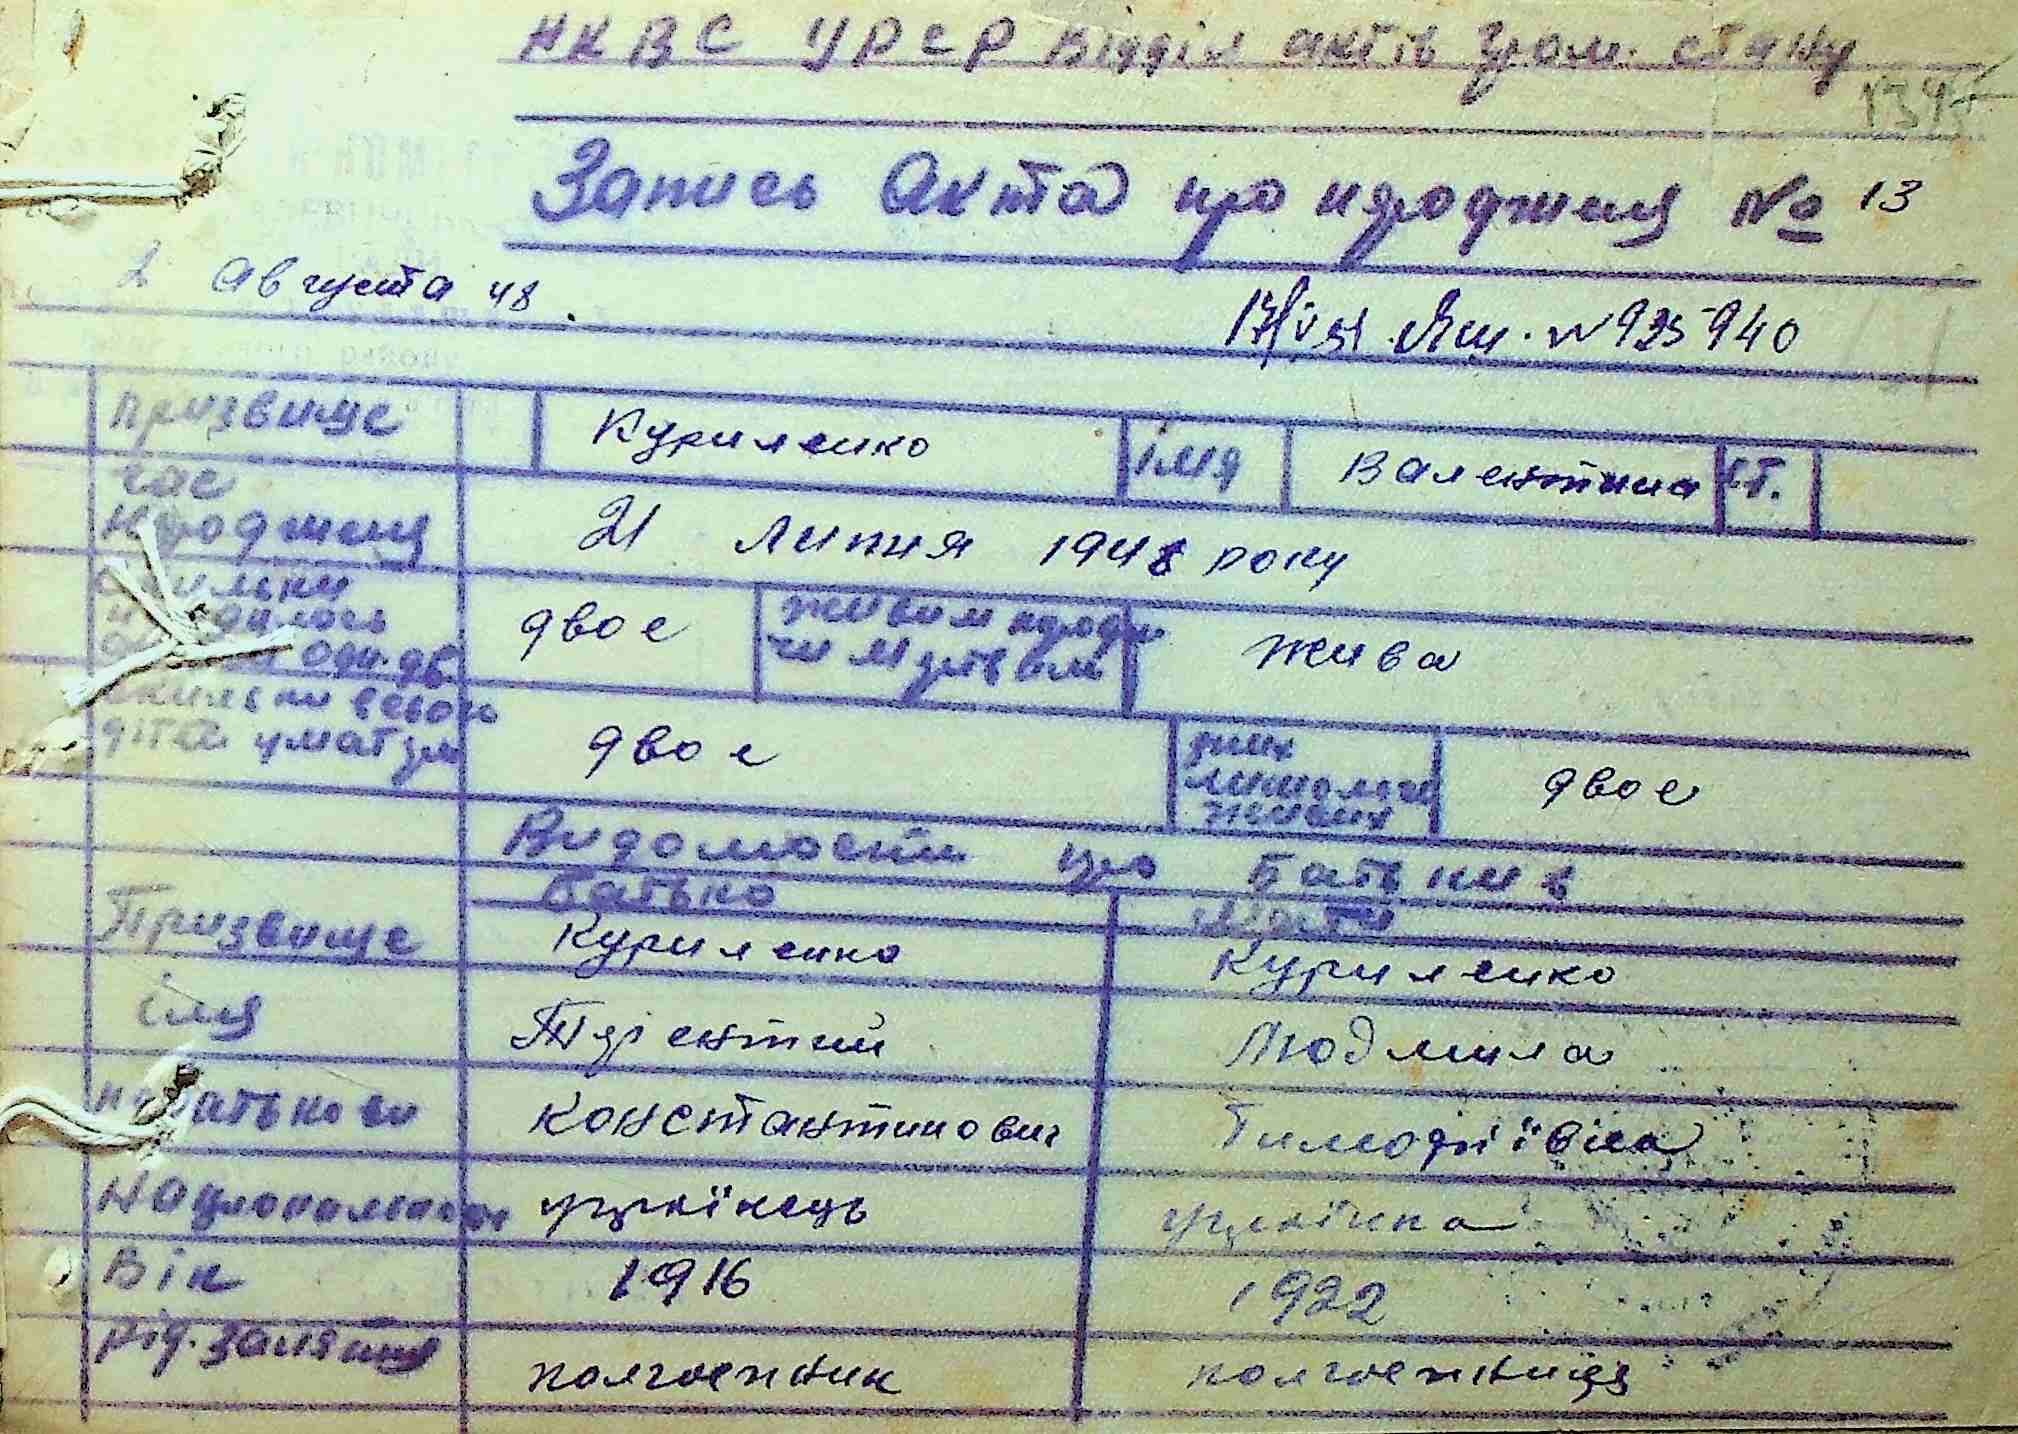 НКВС УРСР Відділ актів гром. стану
134
Запись Акта про народження № 13
2 Августа 48
17/V 51 ЯШ. № 935940
призвище Куриленко імя Валентина ст.
час народження 21 липня 1948 року
скильки народилось одн. дв. двое живим народ. чи мертвим жива
скильки всього дітей у матери двое них лишилось живих двое
Видомости про Батькив
Батько Мати
Призвище Куриленко Куриленко
імя Терентий Людмила
по батькови Константинович Тимофіївна
Национальность українець українка
Вік 1916 1922
рід. заняття колгоспник колгоспниця